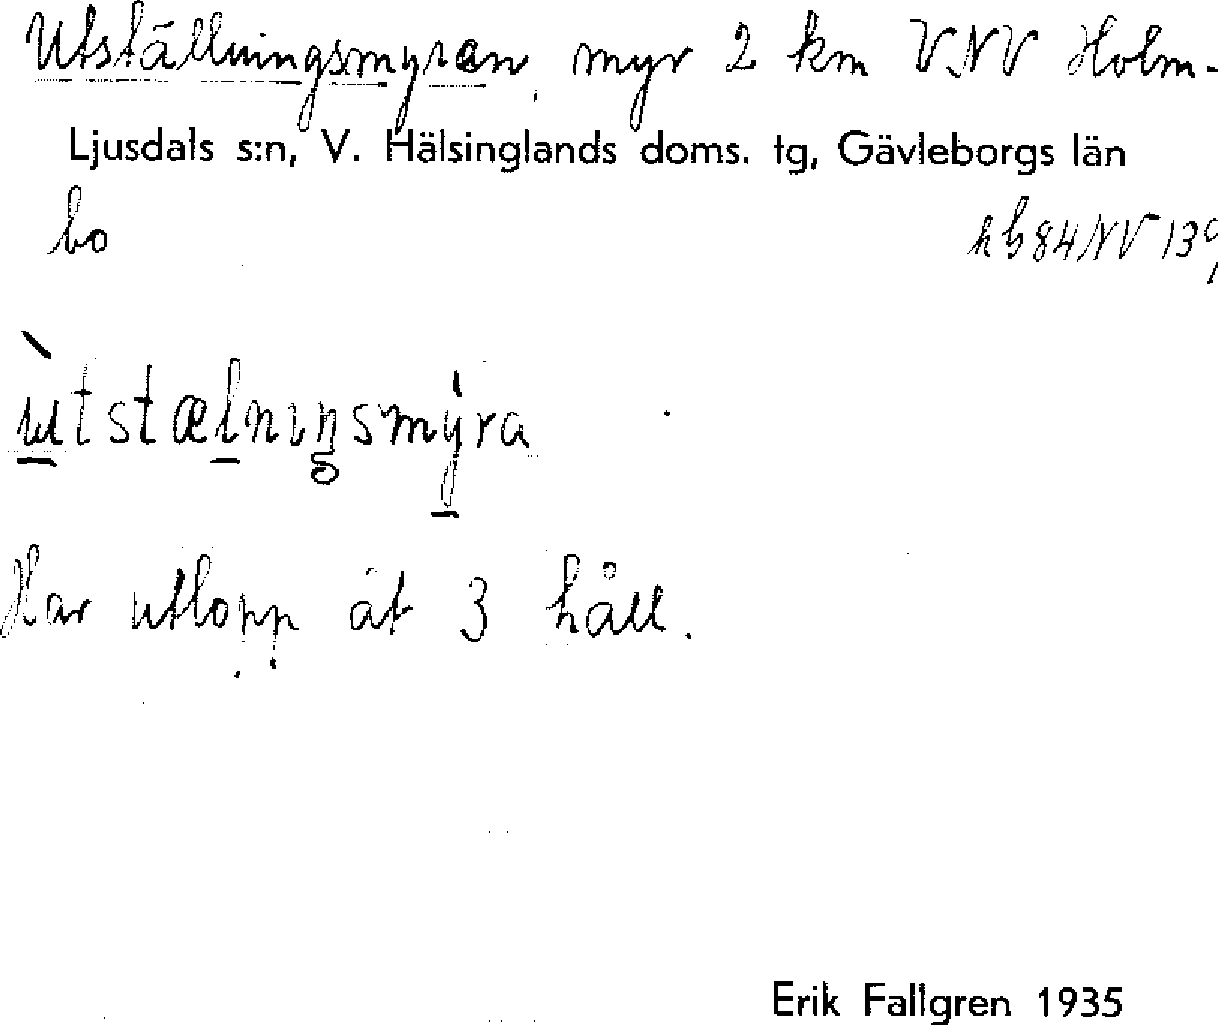 Utställningsmyran, myr 2 km VNV Holm-
Ljusdals s:n, V. Hälsinglands doms. tg, Gävleborgs län
bo
hb 84 NV 139
ùtstælniŋsmýra
Har utlopp åt 3 håll.
Erik Fallgren 1935